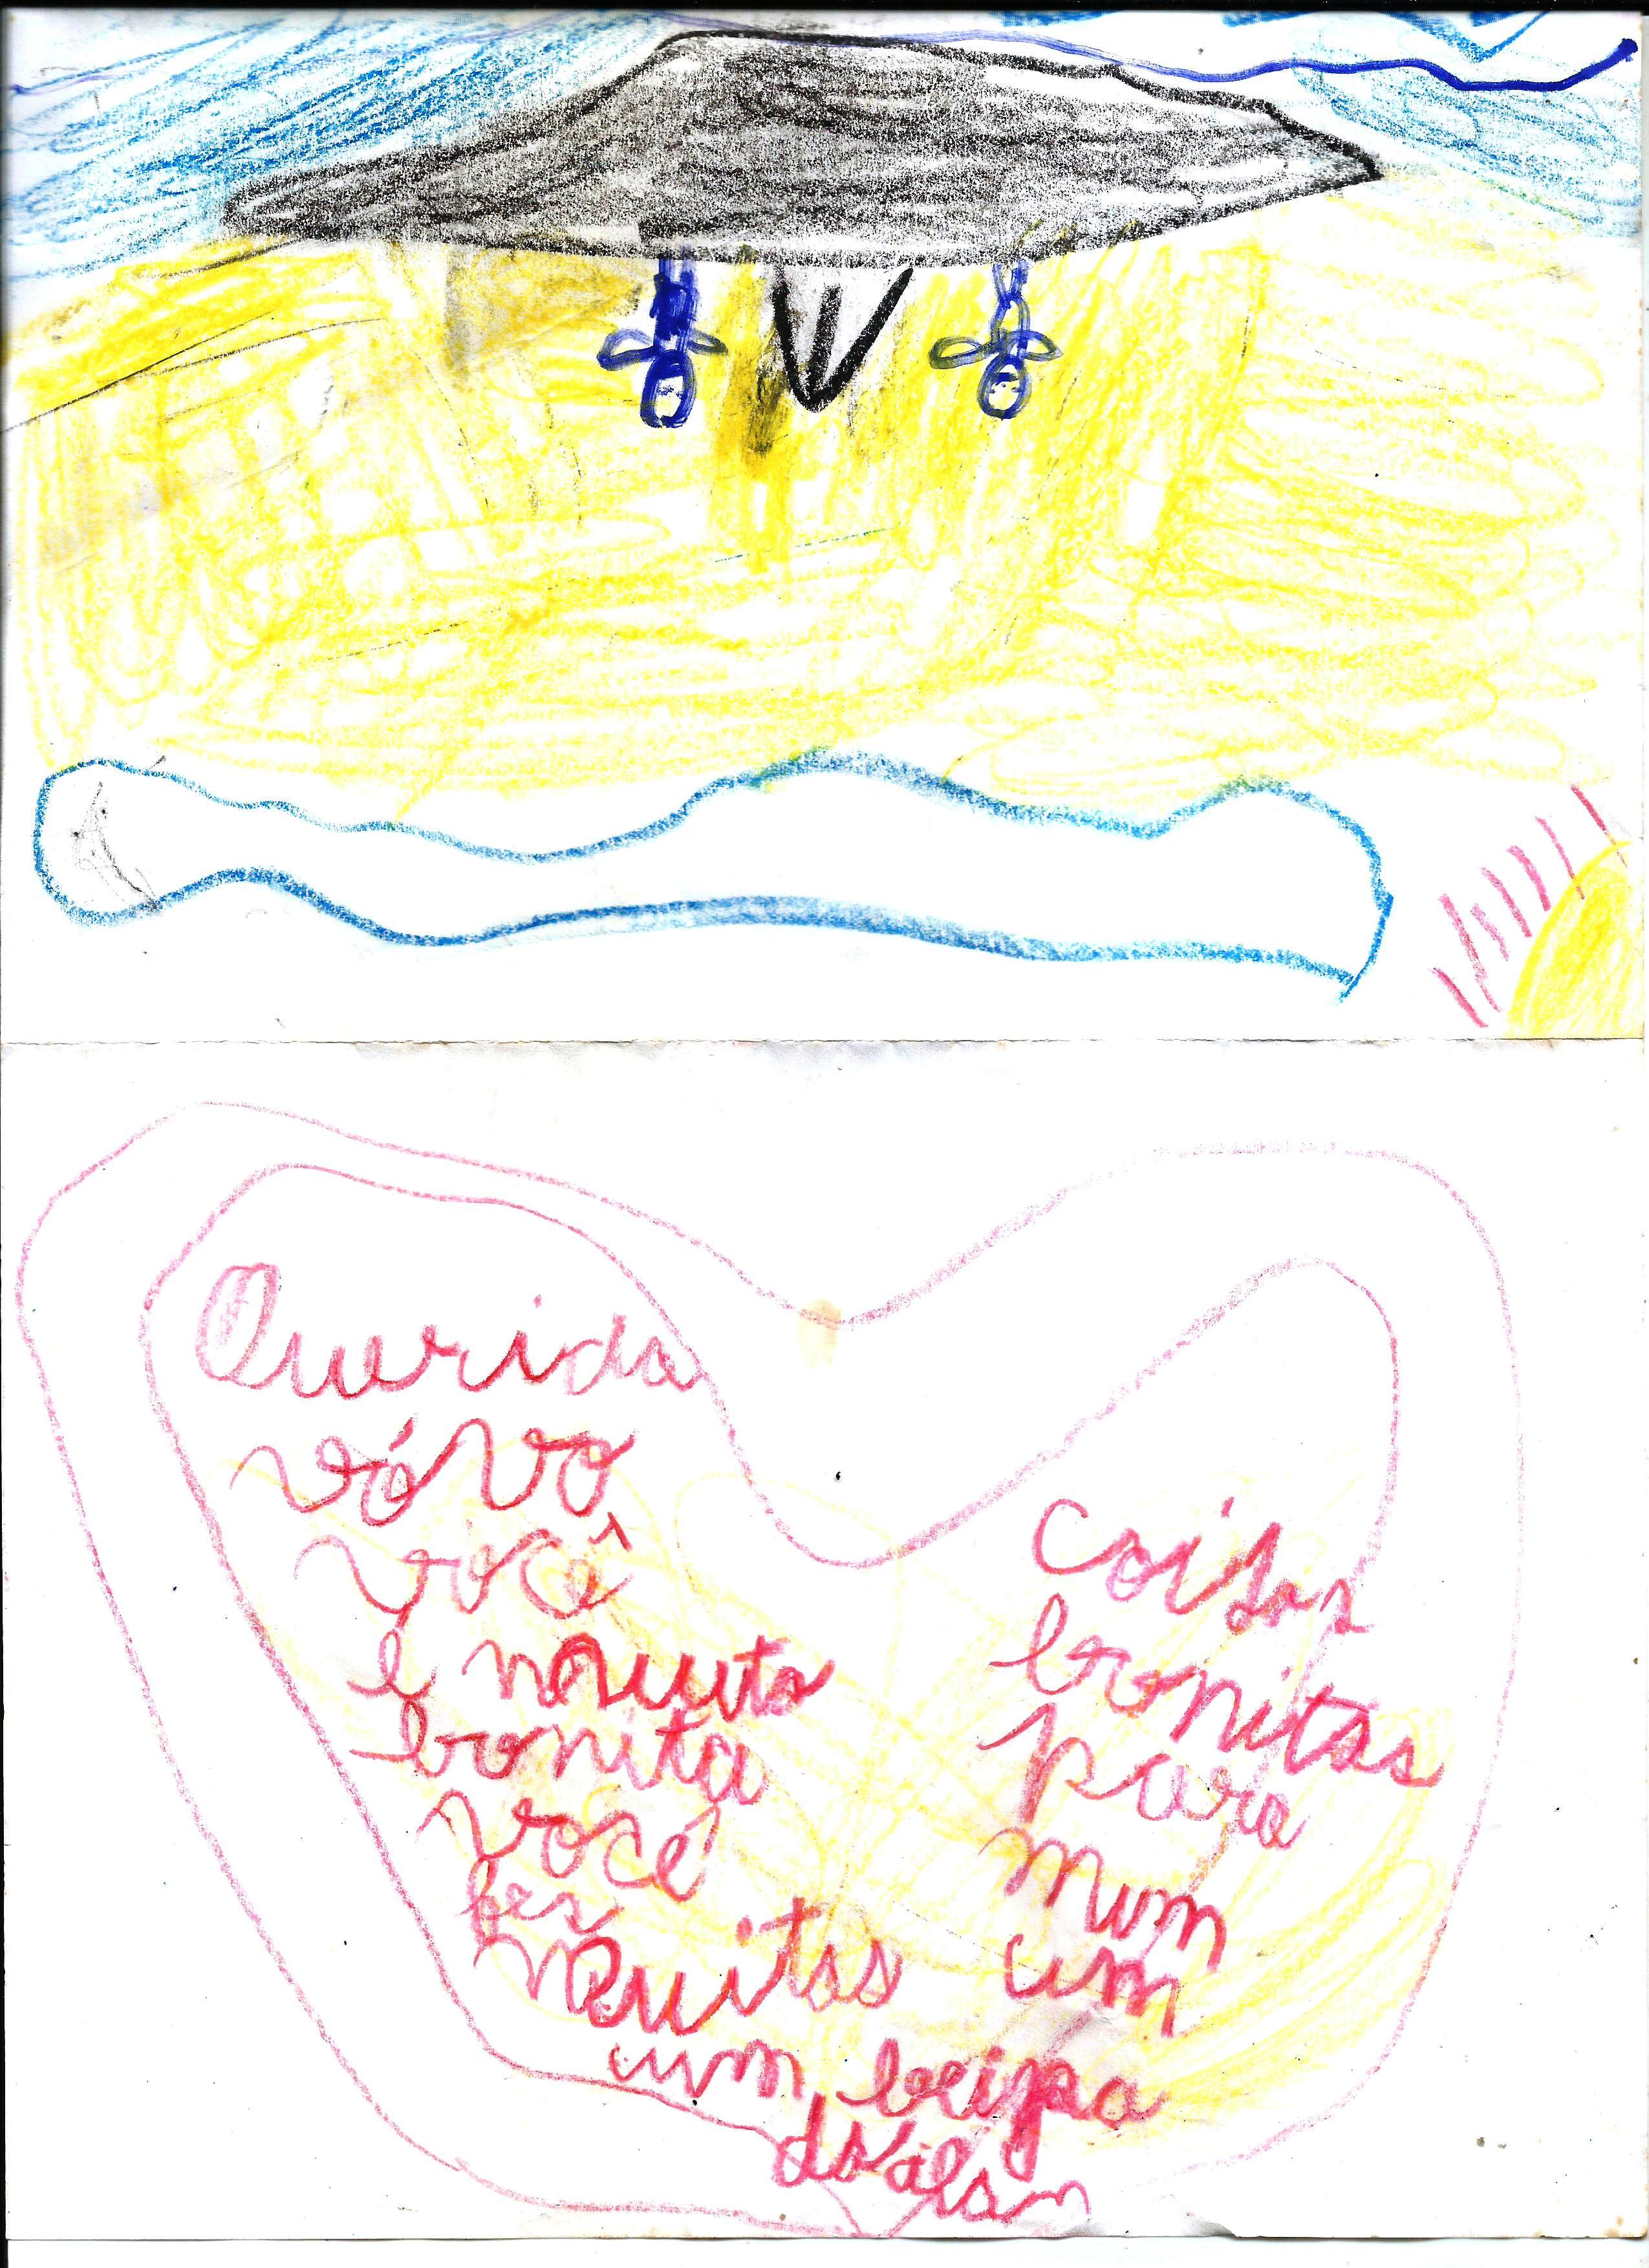 Querida
vóvo
você
e muito
bonita
você
fes
muitas
coisas
bonitas
para
mim
um
um beijo
do alan